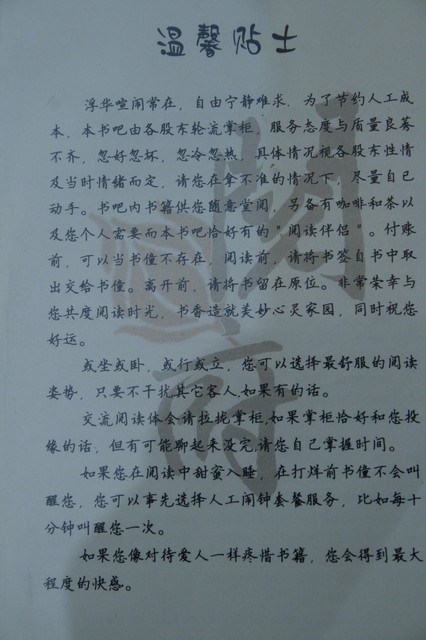 温馨贴士
浮华喧闹常在，自由宁静难求，为了节约人工成
本，本书吧由各股东轮流掌柜，服务态度与质量良莠
不齐，忽好忽坏，忽冷忽热，具体情况视各股东性情
及当时情绪而定，请您在拿不准的情况下，尽量自己
动手。书吧内书籍供您随意堂阅，另备有咖啡和茶以
及您个人需要而本书吧恰好有的“阅读伴侣”。付账
前，可以当书僮不存在，阅读前，请将书签自书中取
出交给书僮。离开前，请将书留在原位。非常荣幸与
您共度阅读时光，书香造就美妙心灵家园，同时祝您
好运。
或坐或卧，或行或立，您可以选择最舒服的阅读
姿势，只要不干扰其它客人,如果有的话。
交流阅读体会请拉拢掌柜,如果掌柜恰好和您投
缘的话，但有可能聊起来没完,请您自己掌握时间。
如果您在阅读中甜蜜入睡，在打烊前书僮不会叫
醒您，您可以事先选择人工闹钟套餐服务，比如每十
分钟叫醒您一次。
如果您像对待爱人一样疼惜书籍，您会得到最大
程度的快感。